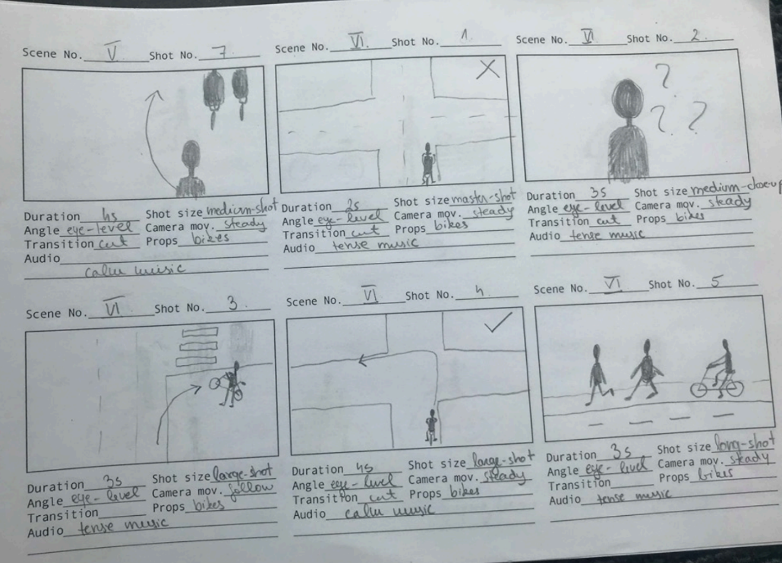 Scene No. V Shot No. 7
Duration 4s Shot size medium-shot
Angle eye-level Camera mov. steady
Transition cut Props bikes
Audio
calm music
Scene No. VI Shot No. 1
X
Duration 2s Shot size master-shot
Angle eye-level Camera mov. steady
Transition cut Props bikes
Audio tense music
Scene No. VI Shot No. 2
?
? ?
Duration 3s Shot size medium-closeup
Angle eye-level Camera mov. steady
Transition cut Props bikes
Audio tense music
Scene No. VI Shot No. 3
Duration 3s Shot size large-shot
Angle eye-level Camera mov. follow
Transition Props bikes
Audio tense music
Scene No. VI Shot No. 4
Duration 4s Shot size large-shot
Angle eye-level Camera mov. steady
Transition cut Props bikes
Audio calm music
Scene No. VI Shot No. 5
Duration 3s Shot size long-shot
Angle eye-level Camera mov. steady
Transition Props bikes
Audio tense music